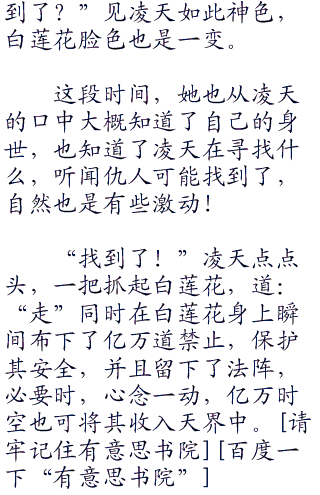 到了？”见凌天如此神色，
白莲花脸色也是一变。
这段时间，她也从凌天
的口中大概知道了自己的身
世，也知道了凌天在寻找什
么，听闻仇人可能找到了，
自然也是有些激动！
“找到了！”凌天点点
头，一把抓起白莲花，道：
“走”同时在白莲花身上瞬
间布下了亿万道禁止，保护
其安全，并且留下了法阵，
必要时，心念一动，亿万时
空也可将其收入天界中。[请
牢记住有意思书院][百度一
下“有意思书院”]